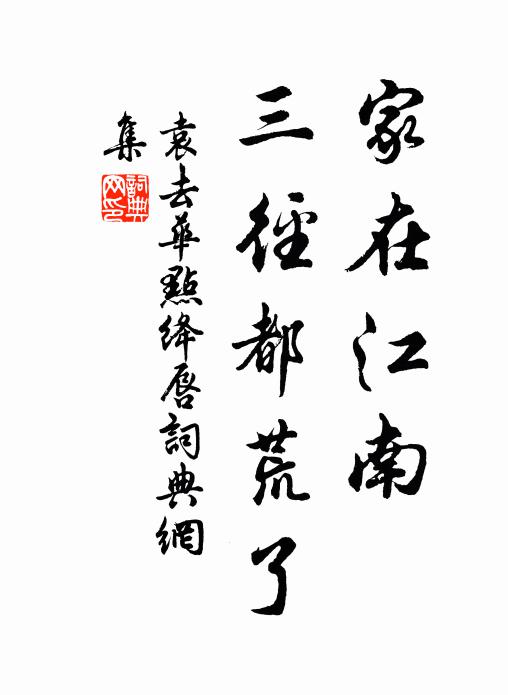 家在江南
三徑都荒了
袁去華點絳唇詞典網
集
詞典网印